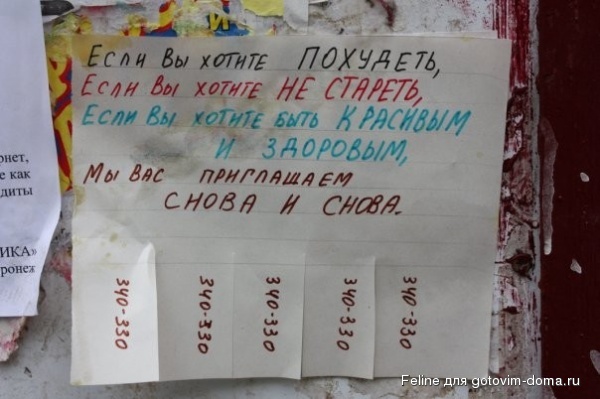 Если Вы хотите ПОХУДЕТЬ,
Если Вы хотите НЕ СТАРЕТЬ,
Если Вы хотите быть КРАСИВЫМ
И ЗДОРОВЫМ,
Мы Вас приглашаем
СНОВА И СНОВА.
340-330
340-330
340-330
340-330
340-330
рнет,
е как
диты
ИКА»
ронеж
Feline для gotovim-doma.ru